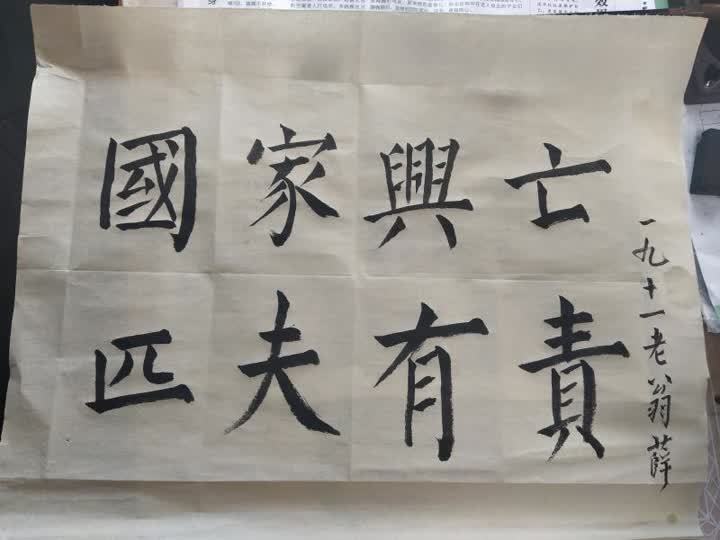 國家興亡
匹夫有責
一九十一老翁薛